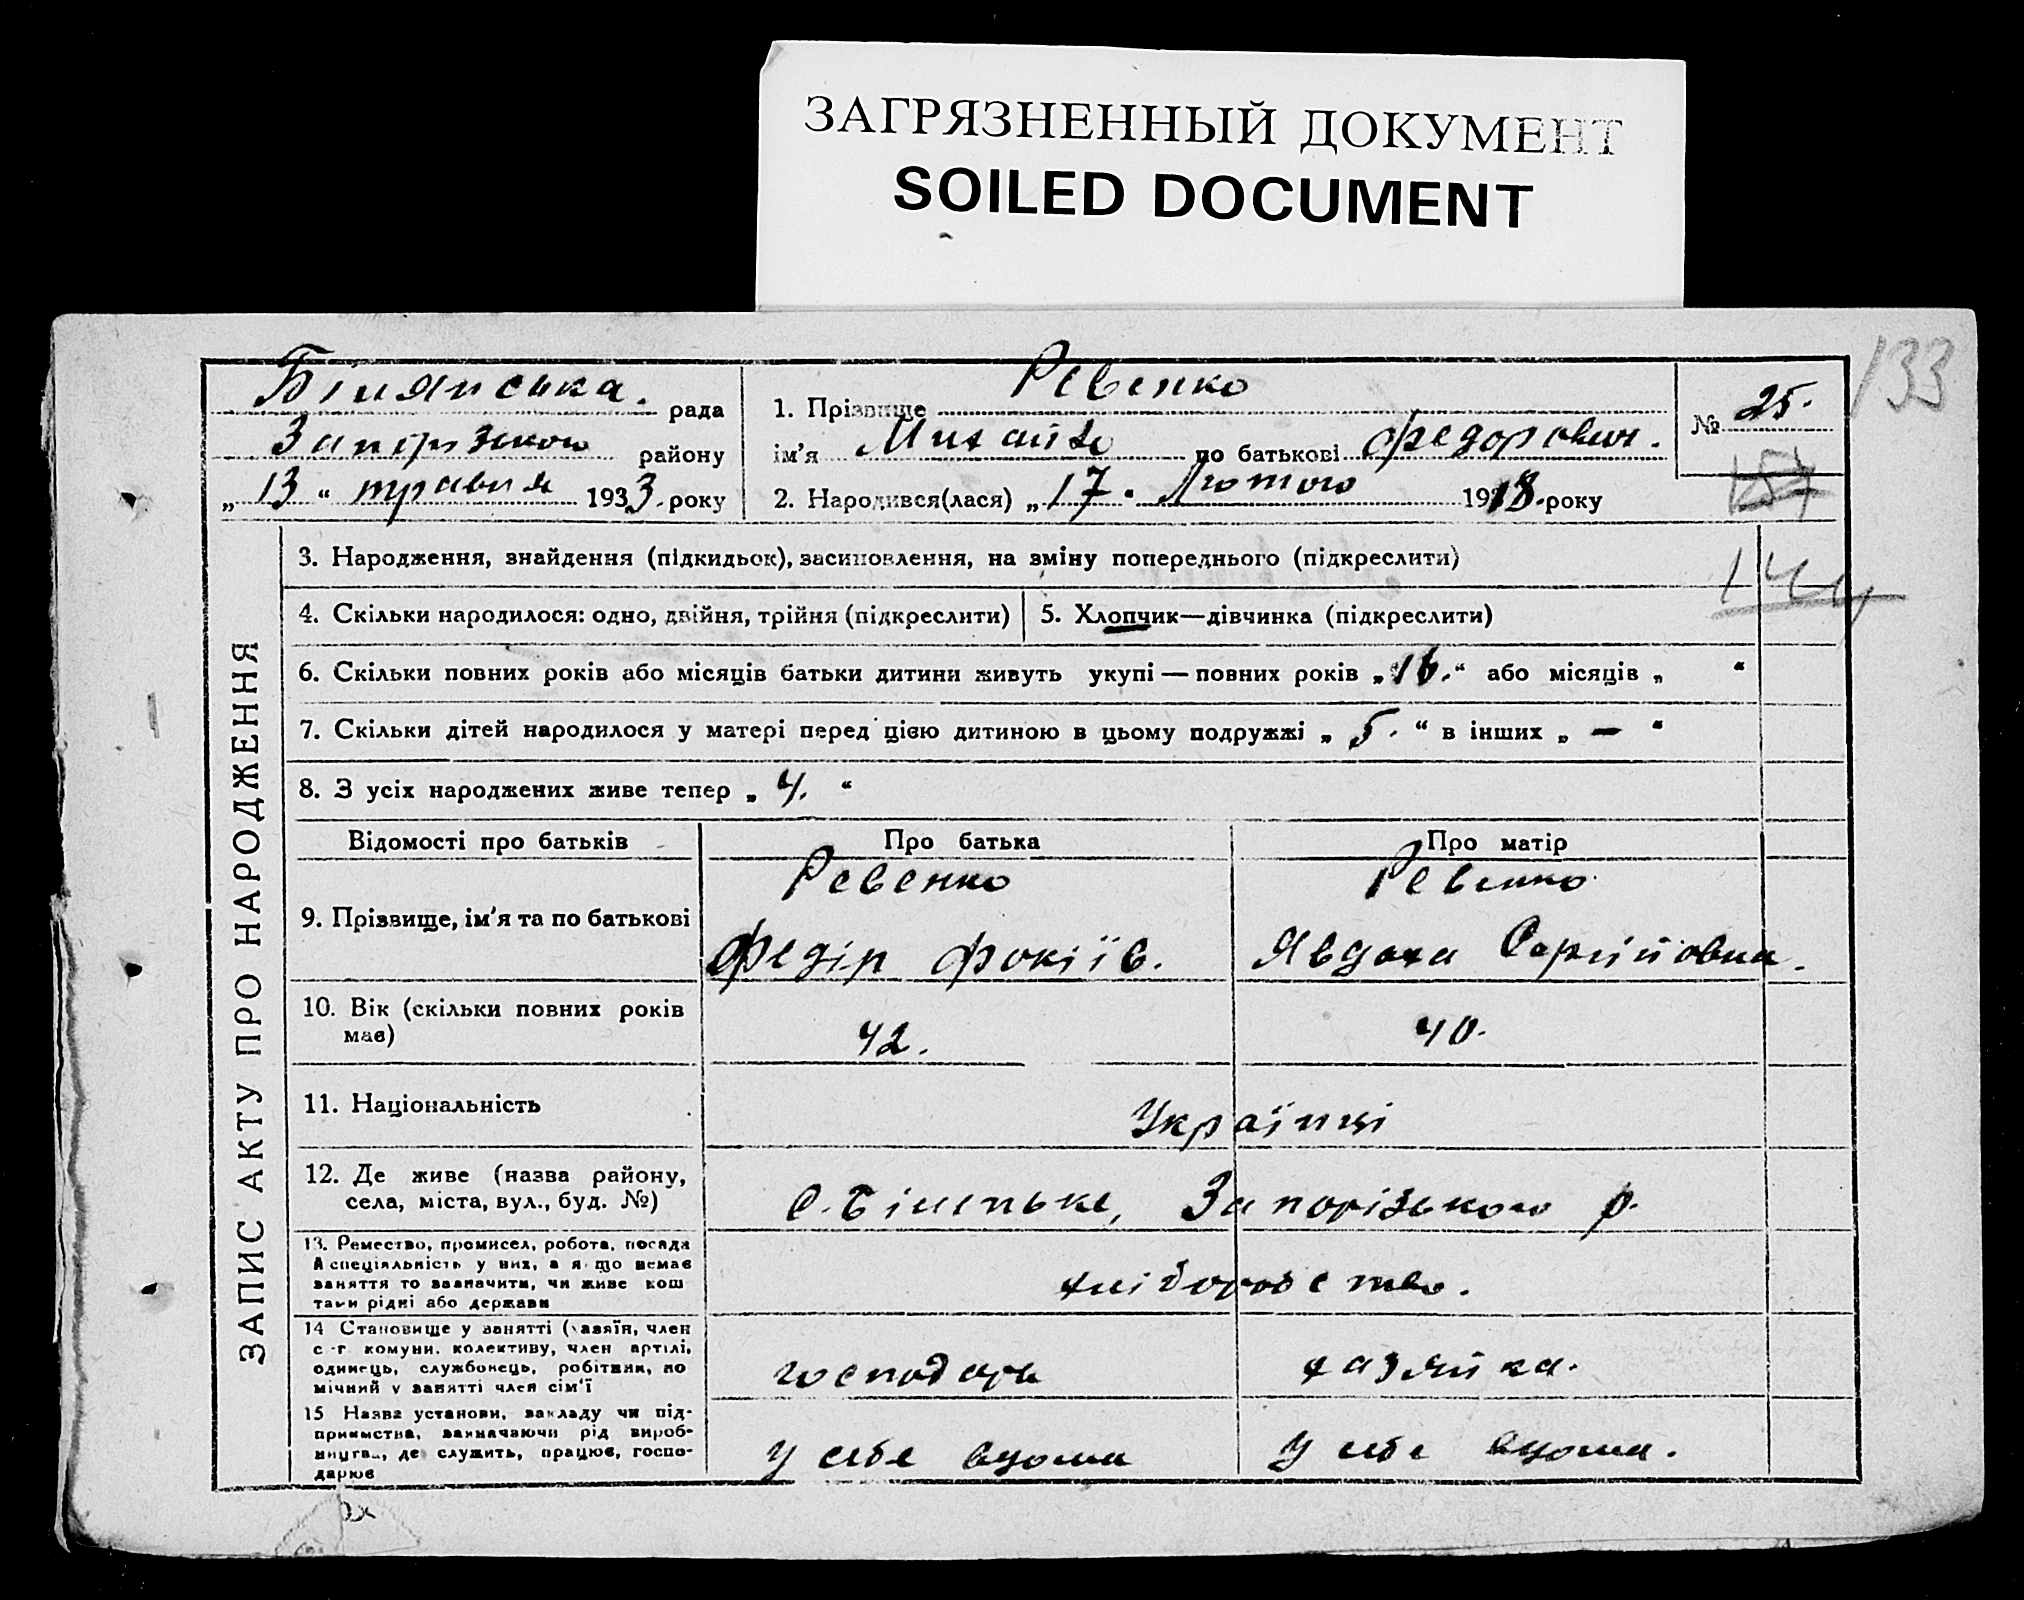 ЗАГРЯЗНЕННЫЙ ДОКУМЕНТ
SOILED DOCUMENT
133
Білянська. рада
Запорізького району
„13“ травня 1933. року
1. Прізвище Ревенко
ім'я Михайло по батькові Федорович.
2. Народився(лася) „17. Лютого 1918. року
№ 25.
144
ЗАПИС АКТУ ПРО НАРОДЖЕННЯ
3. Народження, знайдення (підкидьок), засиновлення, на зміну попереднього (підкреслити)
4. Скільки народилося: одно, двійня, трійня (підкреслити)
5. Хлопчик—дівчинка (підкреслити)
6. Скільки повних років або місяців батьки дитини живуть укупі — повних років „16.“ або місяців „ “
7. Скільки дітей народилося у матері перед цією дитиною в цьому подружжі „ 5. “ в інших „ — “
8. З усіх народжених живе тепер „ 4. “
Відомості про батьків Про батька Про матір
9. Прізвище, ім'я та по батькові
Ревенко
Федір Фокіїв.
Ревенко
Явдоха Сергійовна.
10. Вік (скільки повних років
має)
42. 40.
11. Національність
Українці
12. Де живе (назва району,
села, міста, вул., буд. №)
с. Біленьке, Запорізького р.
13. Ремество, промисел, робота, посада
й спеціяльність у них, а якщо немає
заняття то зазначити, чи живе кош
тами рідні або держави
хліборобство.
14 Становище у занятті (хазяїн, член
с-г комуни. колективу, член артілі,
одинець, службовець, робітник, по
мічний у занятті член сім'ї
господарь хазяйка.
15 Назва установи, закладу чи під-
приємства, зазначаючи рід вироб-
ництва, де служить, працює, госпо-
дарює
у себе вдома у себе вдома.